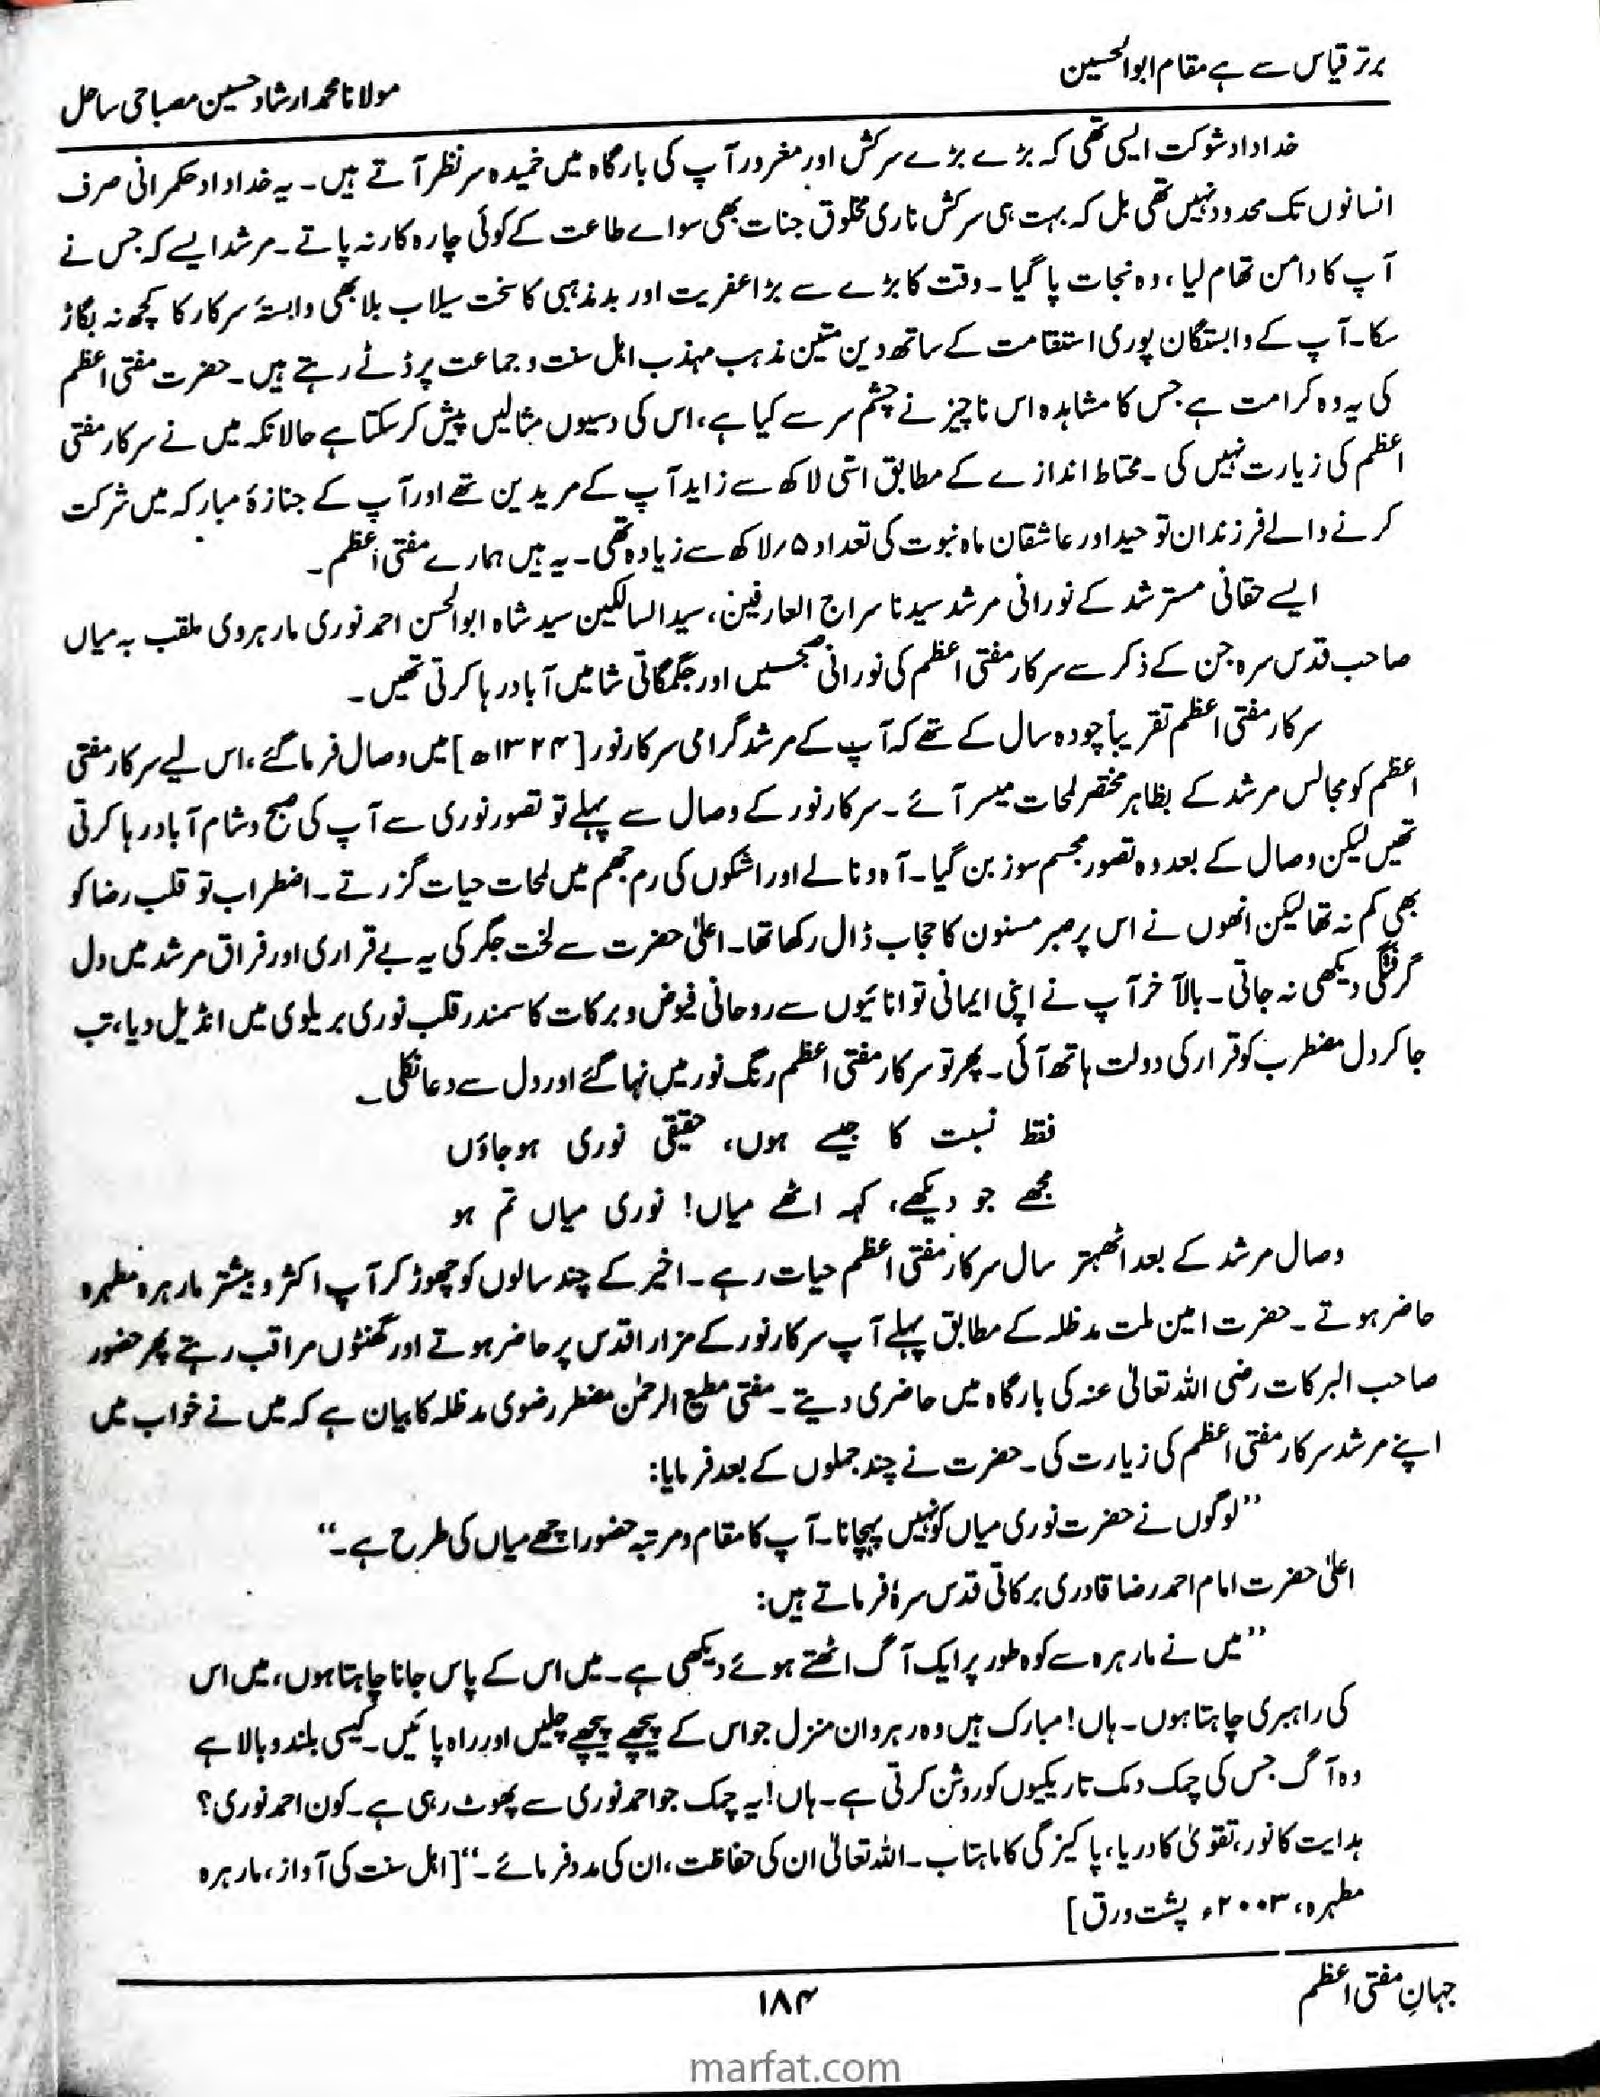 برتر قیاس سے ہے مقام ابوالحسین
مولانا محمد ارشاد حسین مصباحی ساحل
خداداد شوکت ایسی تھی کہ بڑے بڑے سرکش اور مغرور آپ کی بارگاہ میں خمیدہ سر نظر آتے ہیں۔ یہ خداداد حکمرانی صرف
انسانوں تک محدود نہیں تھی بل کہ بہت ہی سرکش ناری مخلوق جنات بھی سواے طاعت کے کوئی چارہ کار نہ پاتے۔ مرشد ایسے کہ جس نے
آپ کا دامن تھام لیا، وہ نجات پا گیا۔ وقت کا بڑے سے بڑا عفریت اور بدمذہبی کا سخت سیلاب بلا بھی وابستۂ سرکار کا کچھ نہ بگاڑ
سکا۔ آپ کے وابستگان پوری استقامت کے ساتھ دین متین مذہب مہذب اہل سنت و جماعت پر ڈٹے رہتے ہیں۔ حضرت مفتی اعظم
کی یہ وہ کرامت ہے جس کا مشاہدہ اس ناچیز نے چشم سر سے کیا ہے، اس کی دسیوں مثالیں پیش کر سکتا ہے حالانکہ میں نے سرکار مفتی
اعظم کی زیارت نہیں کی۔ محتاط اندازے کے مطابق اسّی لاکھ سے زاید آپ کے مریدین تھے اور آپ کے جنازۂ مبارکہ میں شرکت
کرنے والے فرزندان توحید اور عاشقان ماہ نبوت کی تعداد ۵؍لاکھ سے زیادہ تھی۔ یہ ہیں ہمارے مفتی اعظم۔
ایسے حقانی مسترشد کے نورانی مرشد سیدنا سراج العارفین، سید السالکین سید شاہ ابوالحسن احمد نوری مارہروی ملقب بہ میاں
صاحب قدس سرہ جن کے ذکر سے سرکار مفتی اعظم کی نورانی صبحیں اور جگمگاتی شامیں آباد رہا کرتی تھیں۔
سرکار مفتی اعظم تقریباً چودہ سال کے تھے کہ آپ کے مرشد گرامی سرکار نور [۱۳۲۴ھ] میں وصال فرما گئے، اس لیے سرکار مفتی
اعظم کو مجالس مرشد کے بظاہر مختصر لمحات میسر آئے۔ سرکار نور کے وصال سے پہلے تو تصور نوری سے آپ کی صبح و شام آباد رہا کرتی
تھیں لیکن وصال کے بعد وہ تصور مجسم سوز بن گیا۔ آہ و نالے اور اشکوں کی رم جھم میں لمحات حیات گزرتے۔ اضطراب تو قلب رضا کو
بھی کم نہ تھا لیکن انھوں نے اس پر صبر مسنون کا حجاب ڈال رکھا تھا۔ اعلیٰ حضرت سے لخت جگر کی یہ بے قراری اور فراق مرشد میں دل
گرفتگی دیکھی نہ جاتی۔ بالآخر آپ نے اپنی ایمانی توانائیوں سے روحانی فیوض و برکات کا سمندر قلب نوری بریلوی میں انڈیل دیا، تب
جا کر دل مضطرب کو قرار کی دولت ہاتھ آئی۔ پھر تو سرکار مفتی اعظم رنگ نور میں نہا گئے اور دل سے دعا نکلی ؂
فقط نسبت کا جیسے ہوں، حقیقی نوری ہو جاؤں
مجھے جو دیکھے، کہہ اٹھے میاں! نوری میاں تم ہو
وصال مرشد کے بعد اٹھہتر سال سرکار مفتی اعظم حیات رہے۔ اخیر کے چند سالوں کو چھوڑ کر آپ اکثر و بیشتر مارہرہ مطہرہ
حاضر ہوتے۔ حضرت امین ملت مدظلہ کے مطابق پہلے آپ سرکار نور کے مزار اقدس پر حاضر ہوتے اور گھنٹوں مراقب رہتے پھر حضور
صاحب البرکات رضی اللہ تعالیٰ عنہ کی بارگاہ میں حاضری دیتے۔ مفتی مطیع الرحمٰن مضطر رضوی مدظلہ کا بیان ہے کہ میں نے خواب میں
اپنے مرشد سرکار مفتی اعظم کی زیارت کی۔ حضرت نے چند جملوں کے بعد فرمایا:
”لوگوں نے حضرت نوری میاں کو نہیں پہچانا۔ آپ کا مقام و مرتبہ حضور اچھے میاں کی طرح ہے۔“
اعلیٰ حضرت امام احمد رضا قادری برکاتی قدس سرۂ فرماتے ہیں:
”میں نے مارہرہ سے کوہ طور پر ایک آگ اٹھتے ہوئے دیکھی ہے۔ میں اس کے پاس جانا چاہتا ہوں، میں اس
کی راہبری چاہتا ہوں۔ ہاں! مبارک ہیں وہ رہروان منزل جو اس کے پیچھے پیچھے چلیں اور راہ پائیں۔ کیسی بلند و بالا ہے
وہ آگ جس کی چمک دمک تاریکیوں کو روشن کرتی ہے۔ ہاں! یہ چمک جو احمد نوری سے پھوٹ رہی ہے۔ کون احمد نوری؟
ہدایت کا نور، تقویٰ کا دریا، پاکیزگی کا ماہتاب۔ اللہ تعالیٰ ان کی حفاظت، ان کی مدد فرمائے۔“ [اہل سنت کی آواز، مارہرہ
مطہرہ، ۲۰۰۳ء پشت ورق]
جہانِ مفتی اعظم
۱۸۴
marfat.com